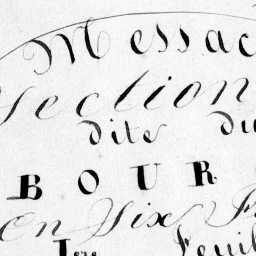 Messac
Section
dite du
BOUR
en Six F
1re Feuil